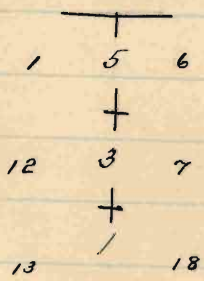 1 5 6
12 3 7
1
13 18